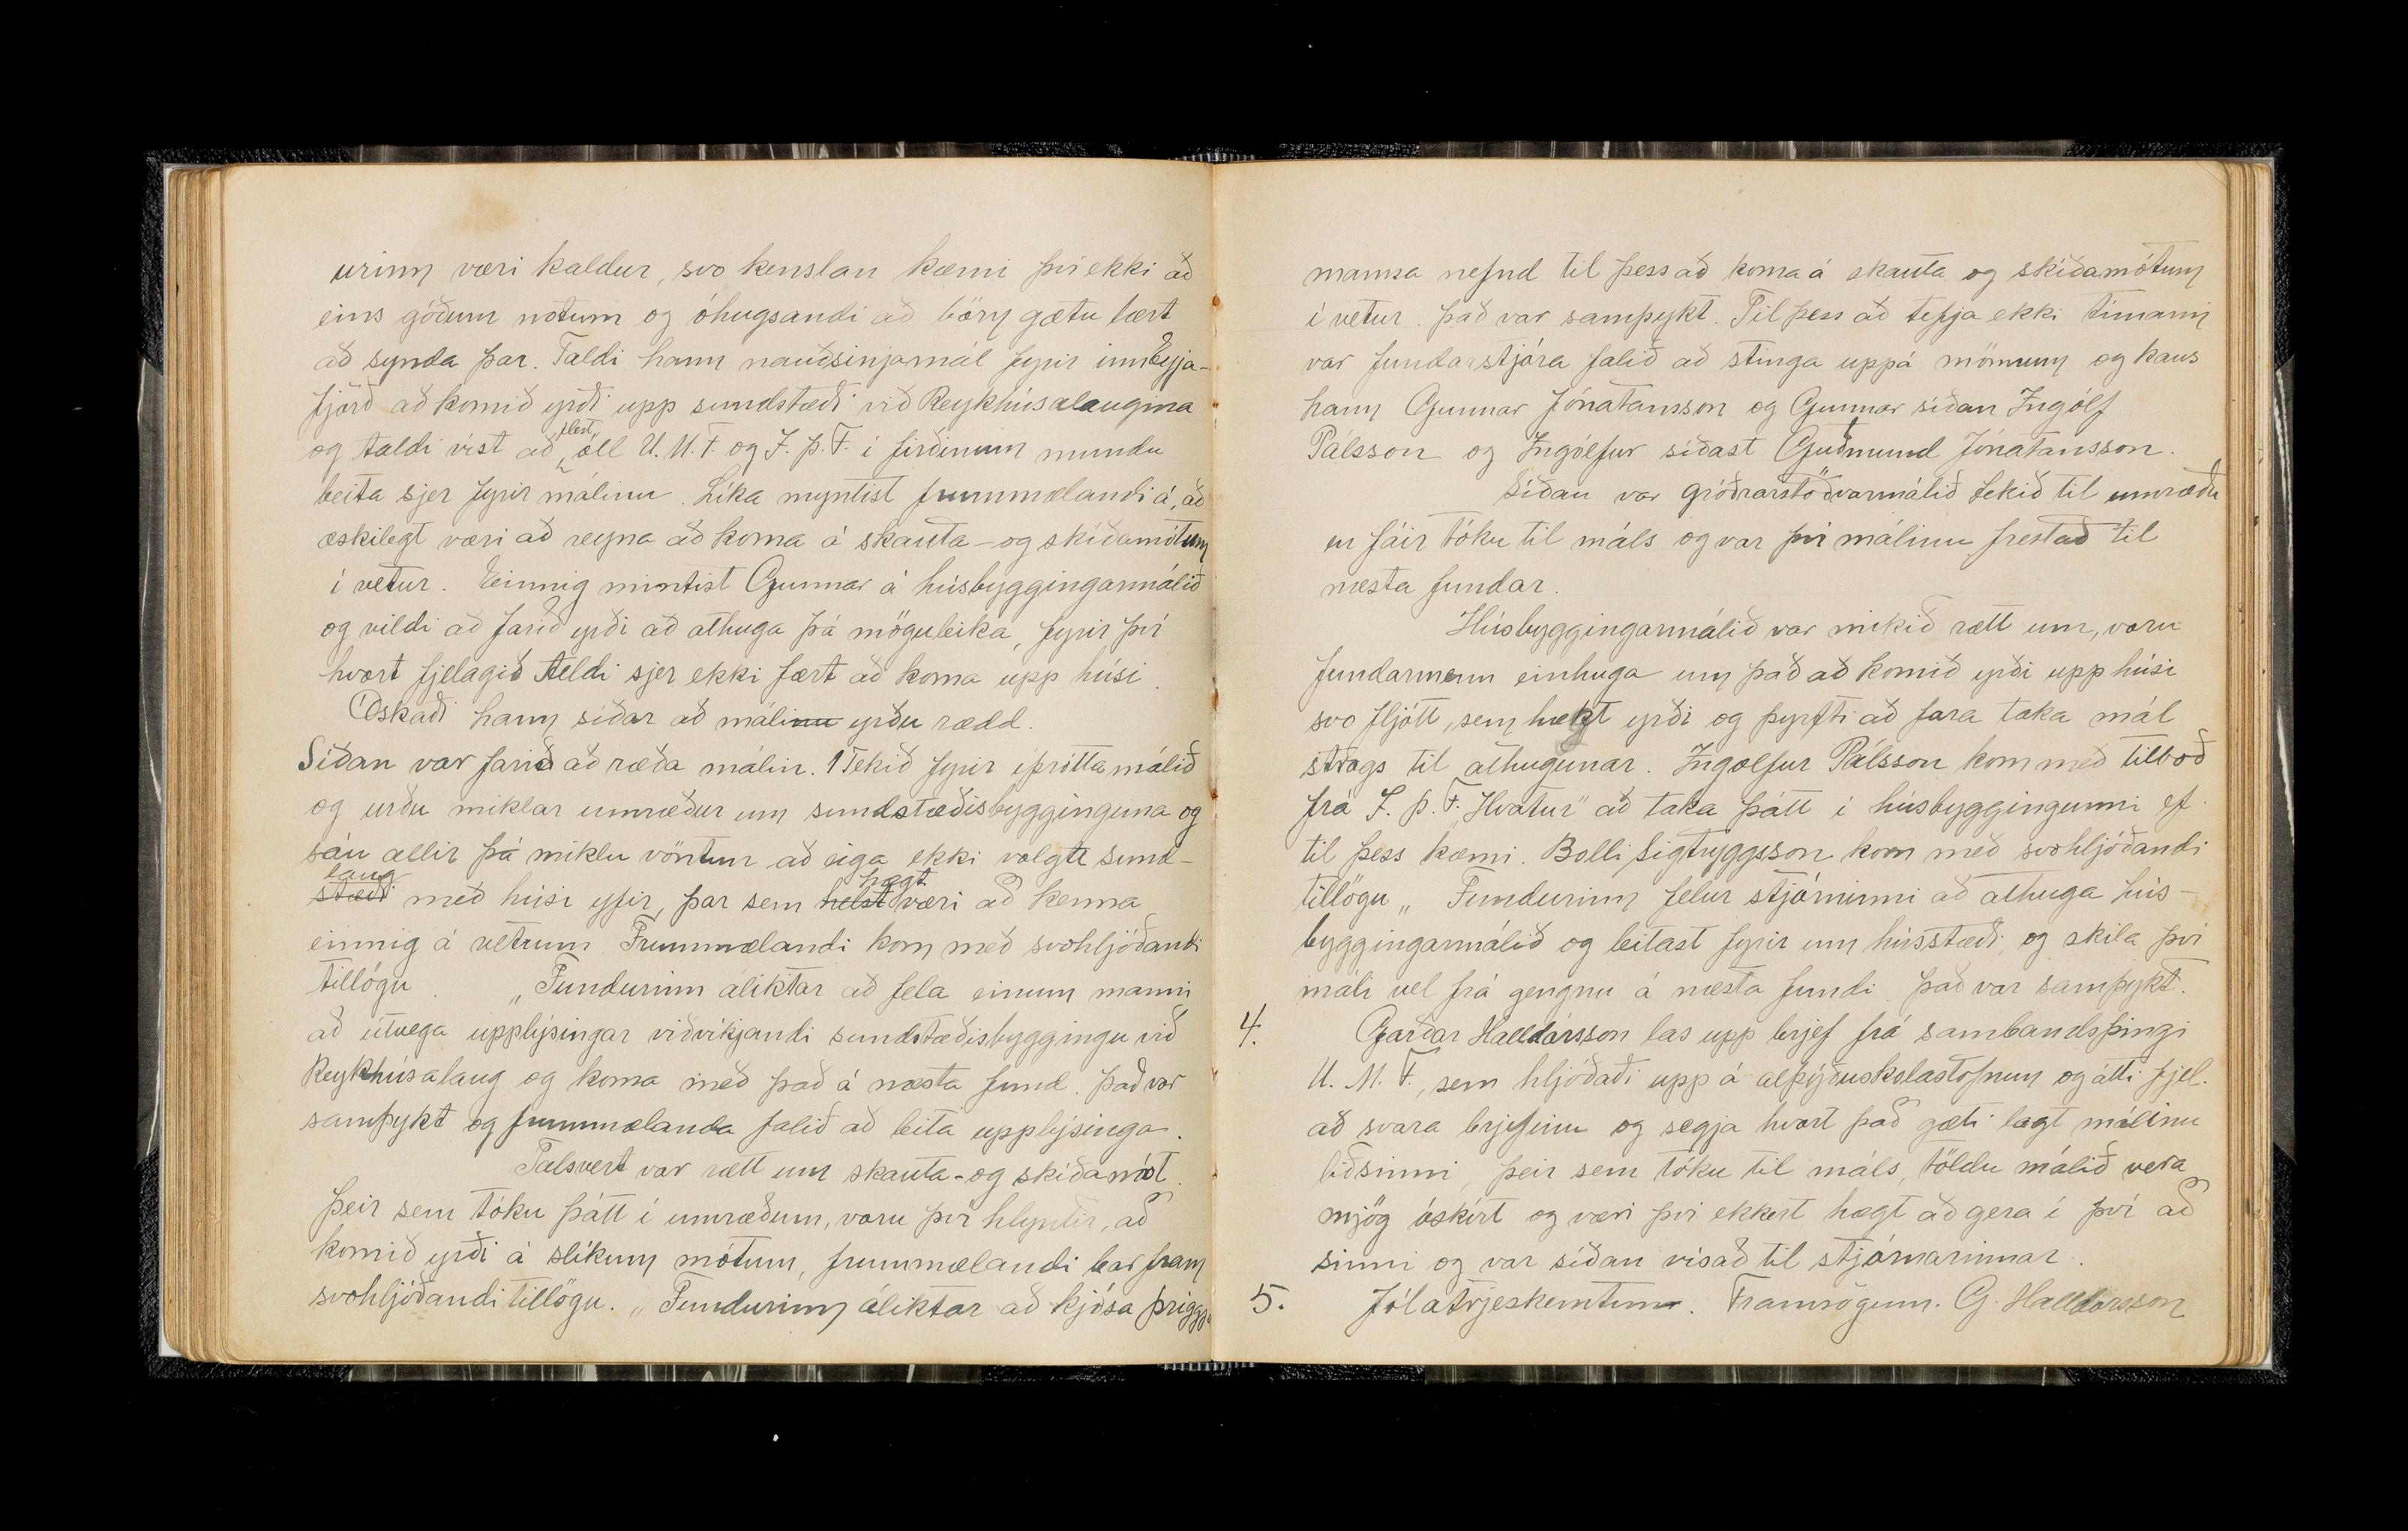 urinn væri kaldur, svo kenslan kæmi því ekki að
eins góðum notum og óhugsandi að börn gætu lært
að synda þar. Taldi hann nauðsinjamál fyrir innEyja-
fjörð að komið yrði upp sundstæði við Reykhúsalaugina
og taldi víst að flest öll U.M.F. og Í.Þ.F. í firðinum mundu
beita sjer fyrir málinu. Líka myntist frummælandi á, að
æskilegt væri að reyna að koma á skauta- og skíðamótum
í vetur. Einnig mintist Gunnar á húsbyggingarmálið
og vildi að farið yrði að athuga þá möguleika, fyrir því
hvort fjelagið teldi sjer ekki fært að koma upp húsi.
Óskaði hann síðar að málinu yrðu rædd.
Síðan var farið að ræða málin. 1 Tekið fyrir íþróttamálið
og urðu miklar umræður um sundstæðisbygginguna og
sáu allir þá miklu vöntun að eiga ekki volgte sund-
stæði laug með húsi yfir, þar sem helst hægt væri að kenna
einnig á vetrum. Frummælandi kom með svohljóðandi
tillögu. „Fundurinn áliktar að fela einum manni
að útvega upplýsingar viðvíkjandi sundstæðisbyggingu við
Reykhúsalaug og koma með það á næsta fund. það var
samþykt og frummælanda falið að leita upplýsinga.
Talsvert var rætt um skauta- og skíðamót.
Þeir sem tóku þátt í umræðum, voru því hlyntir, að
komið yrði á slíkum mótum, frummælandi bar fram
svohljóðandi tillögu. „Fundurinn áliktar að kjósa þriggja
manna nefnd til þess að koma á skauta og skíðamótum
í vetur. það var samþykt. Til þess að tefja ekki tímann
var fundarstjóra falið að stinga uppá mönnum og kaus
hann Gunnar Jónatansson og Gunnar síðan Ingólf
Pálsson og Ingólfur síðast Guðmund Jónatansson.
Síðan var gróðrarstöðvarmálið tekið til umræðu
en fáir tóku til máls og var því málinu frestað til
næsta fundar.
Húsbyggingarmálið var mikið rætt um, voru
fundarmenn einhuga um það að komið yrði upp húsi
svo fljótt, sem hægt yrði og þyrfti að fara taka mál
strags til athugunar. Ingólfur Pálsson kom með tilboð
frá Í.Þ.F. „Hvatur" að taka þátt í húsbyggingunni ef
til þess kæmi. Bolli Sigtryggsson kom með svohljóðandi
tillögu „ Fundurinn felur stjórninni að athuga hús-
byggingarmálið og leitast fyrir um hússtæði, og skila því
máli vel frá gengnu á næsta fundi. það var samþykt.
4. Garðar Halldórsson las upp brjef frá sambandsþingi
U.M.F., sem hljóðaði upp á alþýðuskólastofnun og átti fjel.
að svara brjefinu og segja hvort það gæti lagt málinu
liðsinni, þeir sem tóku til máls, töldu málið vera
mjög óskírt og væri því ekkert hægt að gera í því að
sinni og var síðan vísað til stjórnarinnar.
5. Jólatrjeskemtun. Framsögum. G. Halldórsson